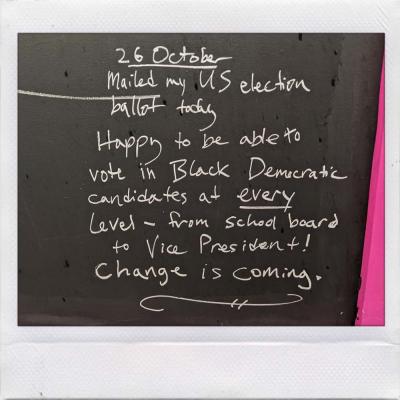 26 October
Mailed my US election
ballot today
Happy to be able to
vote in Black Democratic
candidates at every
level - from school board
to Vice President!
Change is coming.